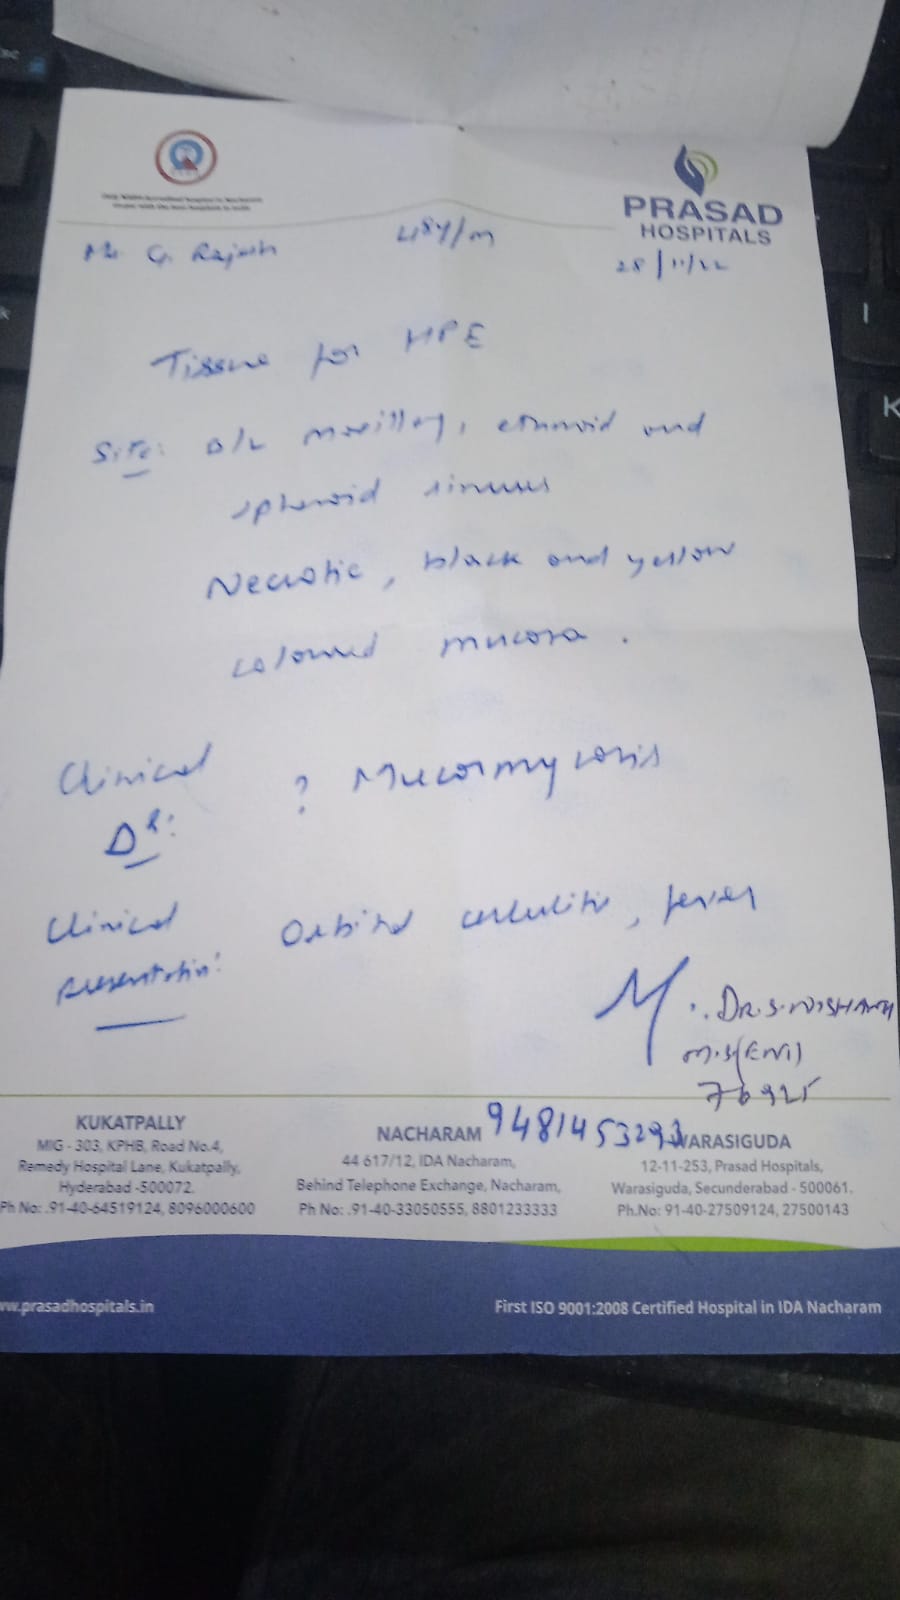 PRASAD
HOSPITALS
Mr. G. Rajesh 48Y/M
28/11/22
Tissue for HPE
Site: B/L maxillary, ethmoid and
sphenoid sinuses
Necrotic, black and yellow
coloured mucosa.
Clinical ? Mucormycosis
Dx:
Clinical Orbital cellulitis, fever
presentation:
Dr. S. NISHANTH
M.S(ENT)
76925
9481453293
KUKATPALLY
MIG - 303, KPHB, Road No.4,
Remedy Hospital Lane, Kukatpally,
Hyderabad -500072.
Ph No: .91-40-64519124, 8096000600
NACHARAM
44 617/12, IDA Nacharam,
Behind Telephone Exchange, Nacharam,
Ph No: .91-40-33050555, 8801233333
WARASIGUDA
12-11-253, Prasad Hospitals,
Warasiguda, Secunderabad - 500061.
Ph.No: 91-40-27509124, 27500143
ww.prasadhospitals.in
First ISO 9001:2008 Certified Hospital in IDA Nacharam